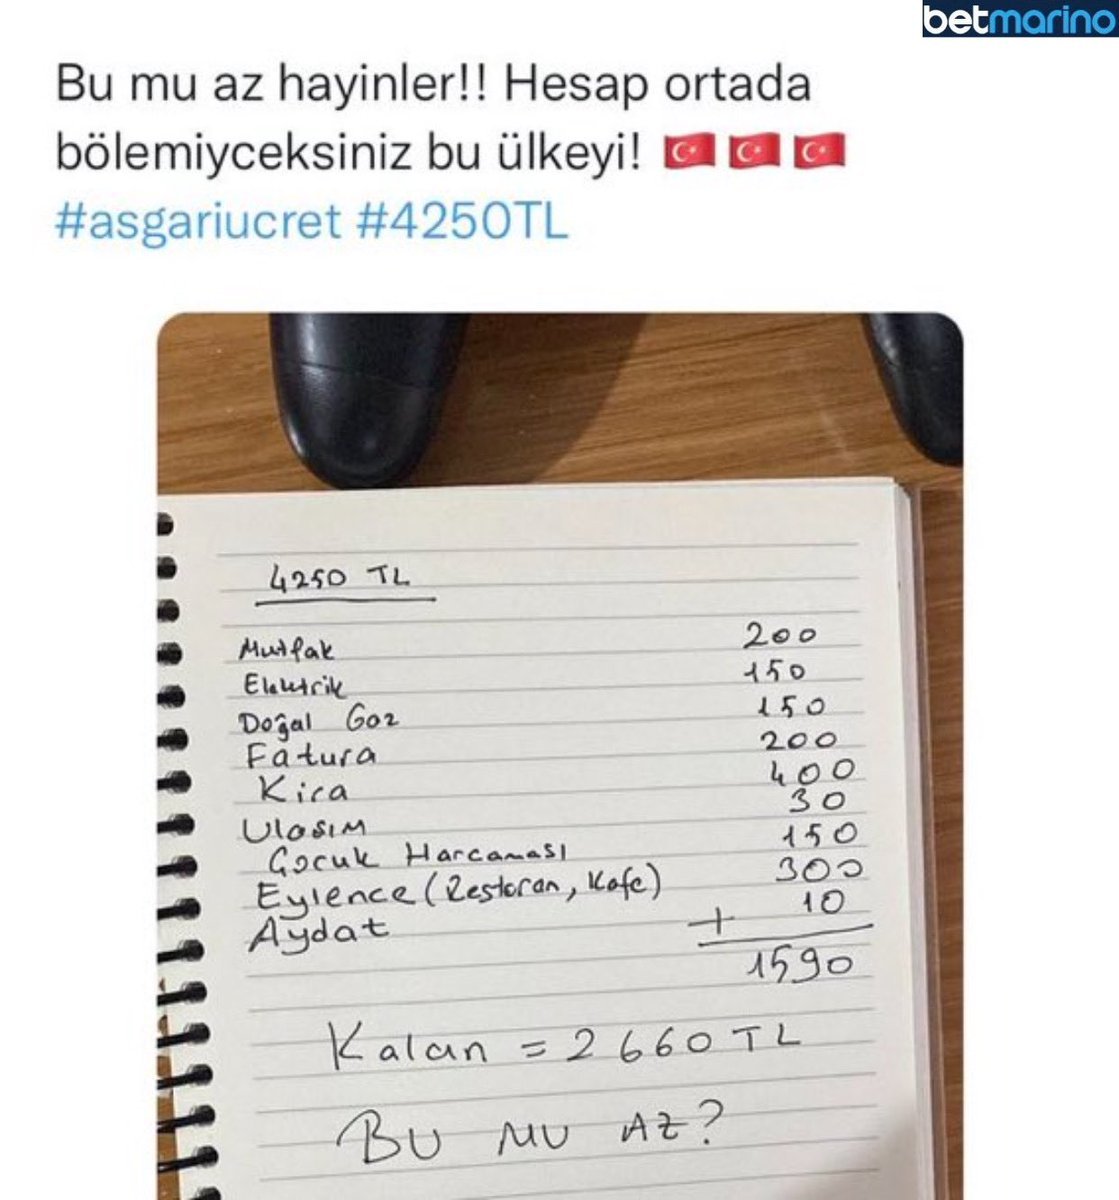 betmarino
Bu mu az hayinler!! Hesap ortada
bölemiyceksiniz bu ülkeyi! 🇹🇷 🇹🇷 🇹🇷
#asgariucret #4250TL
4250 TL
Mutfak 200
Elektrik 150
Doğal Gaz 150
Fatura 200
Kira 400
Ulaşım 30
Çocuk Harcaması 150
Eylence (Restoran, Kafe) 300
Aydat + 10
1590
Kalan = 2660 TL
BU MU AZ?